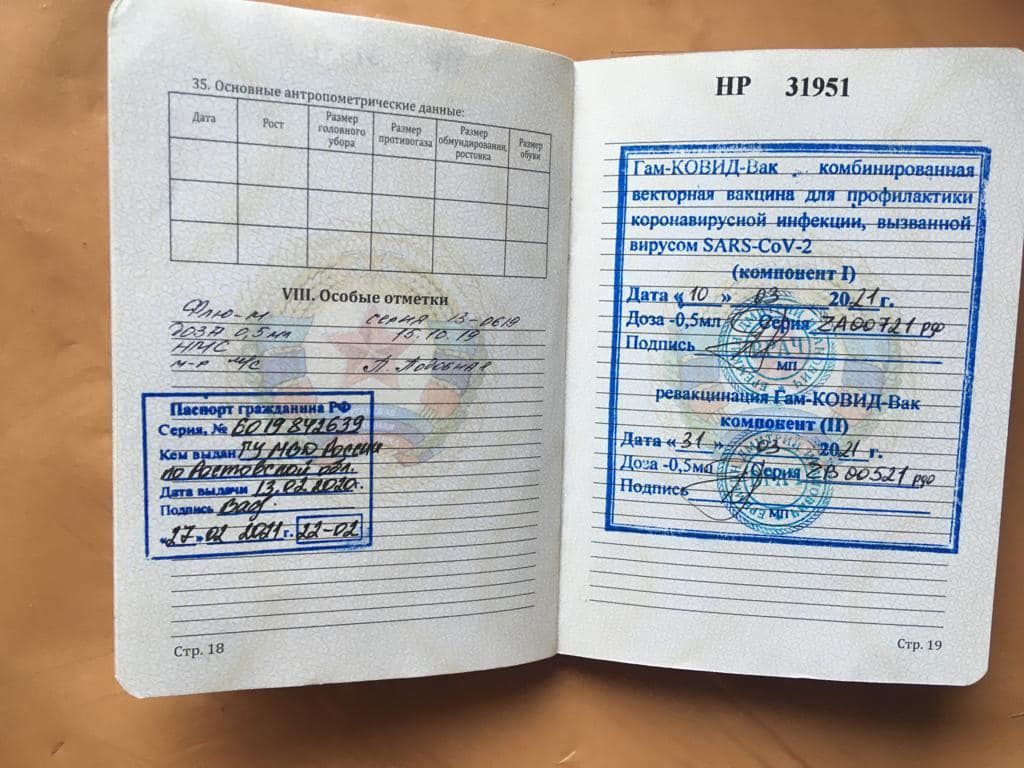 35. Основные антропометрические данные:
Дата Рост Размер головного убора Размер противогаза Размер обмундирования, ростовка Размер обуви
VIII. Особые отметки
Флю-М серия 13-0619
доза 0,5мл 15.10.19
НМС
м-р м/с
Паспорт гражданина РФ
Серия, № 6019842639
Кем выдан ГУ МВД России
по Ростовской обл.
Дата выдачи 13.02.2020г.
Подпись
«27» 02 2021 г. 22-02
Стр. 18
НР 31951
Гам-КОВИД-Вак комбинированная
векторная вакцина для профилактики
коронавирусной инфекции, вызванной
вирусом SARS-CoV-2
(компонент I)
Дата «10» 03 2021 г.
Доза -0,5мл Серия ZA00721 рдо
Подпись ВРАЧ
МП
ревакцинация Гам-КОВИД-Вак
компонент (II)
Дата «31» 03 2021 г.
Доза -0,5мл Серия ZB00521 рдо
Подпись
МП
Стр. 19